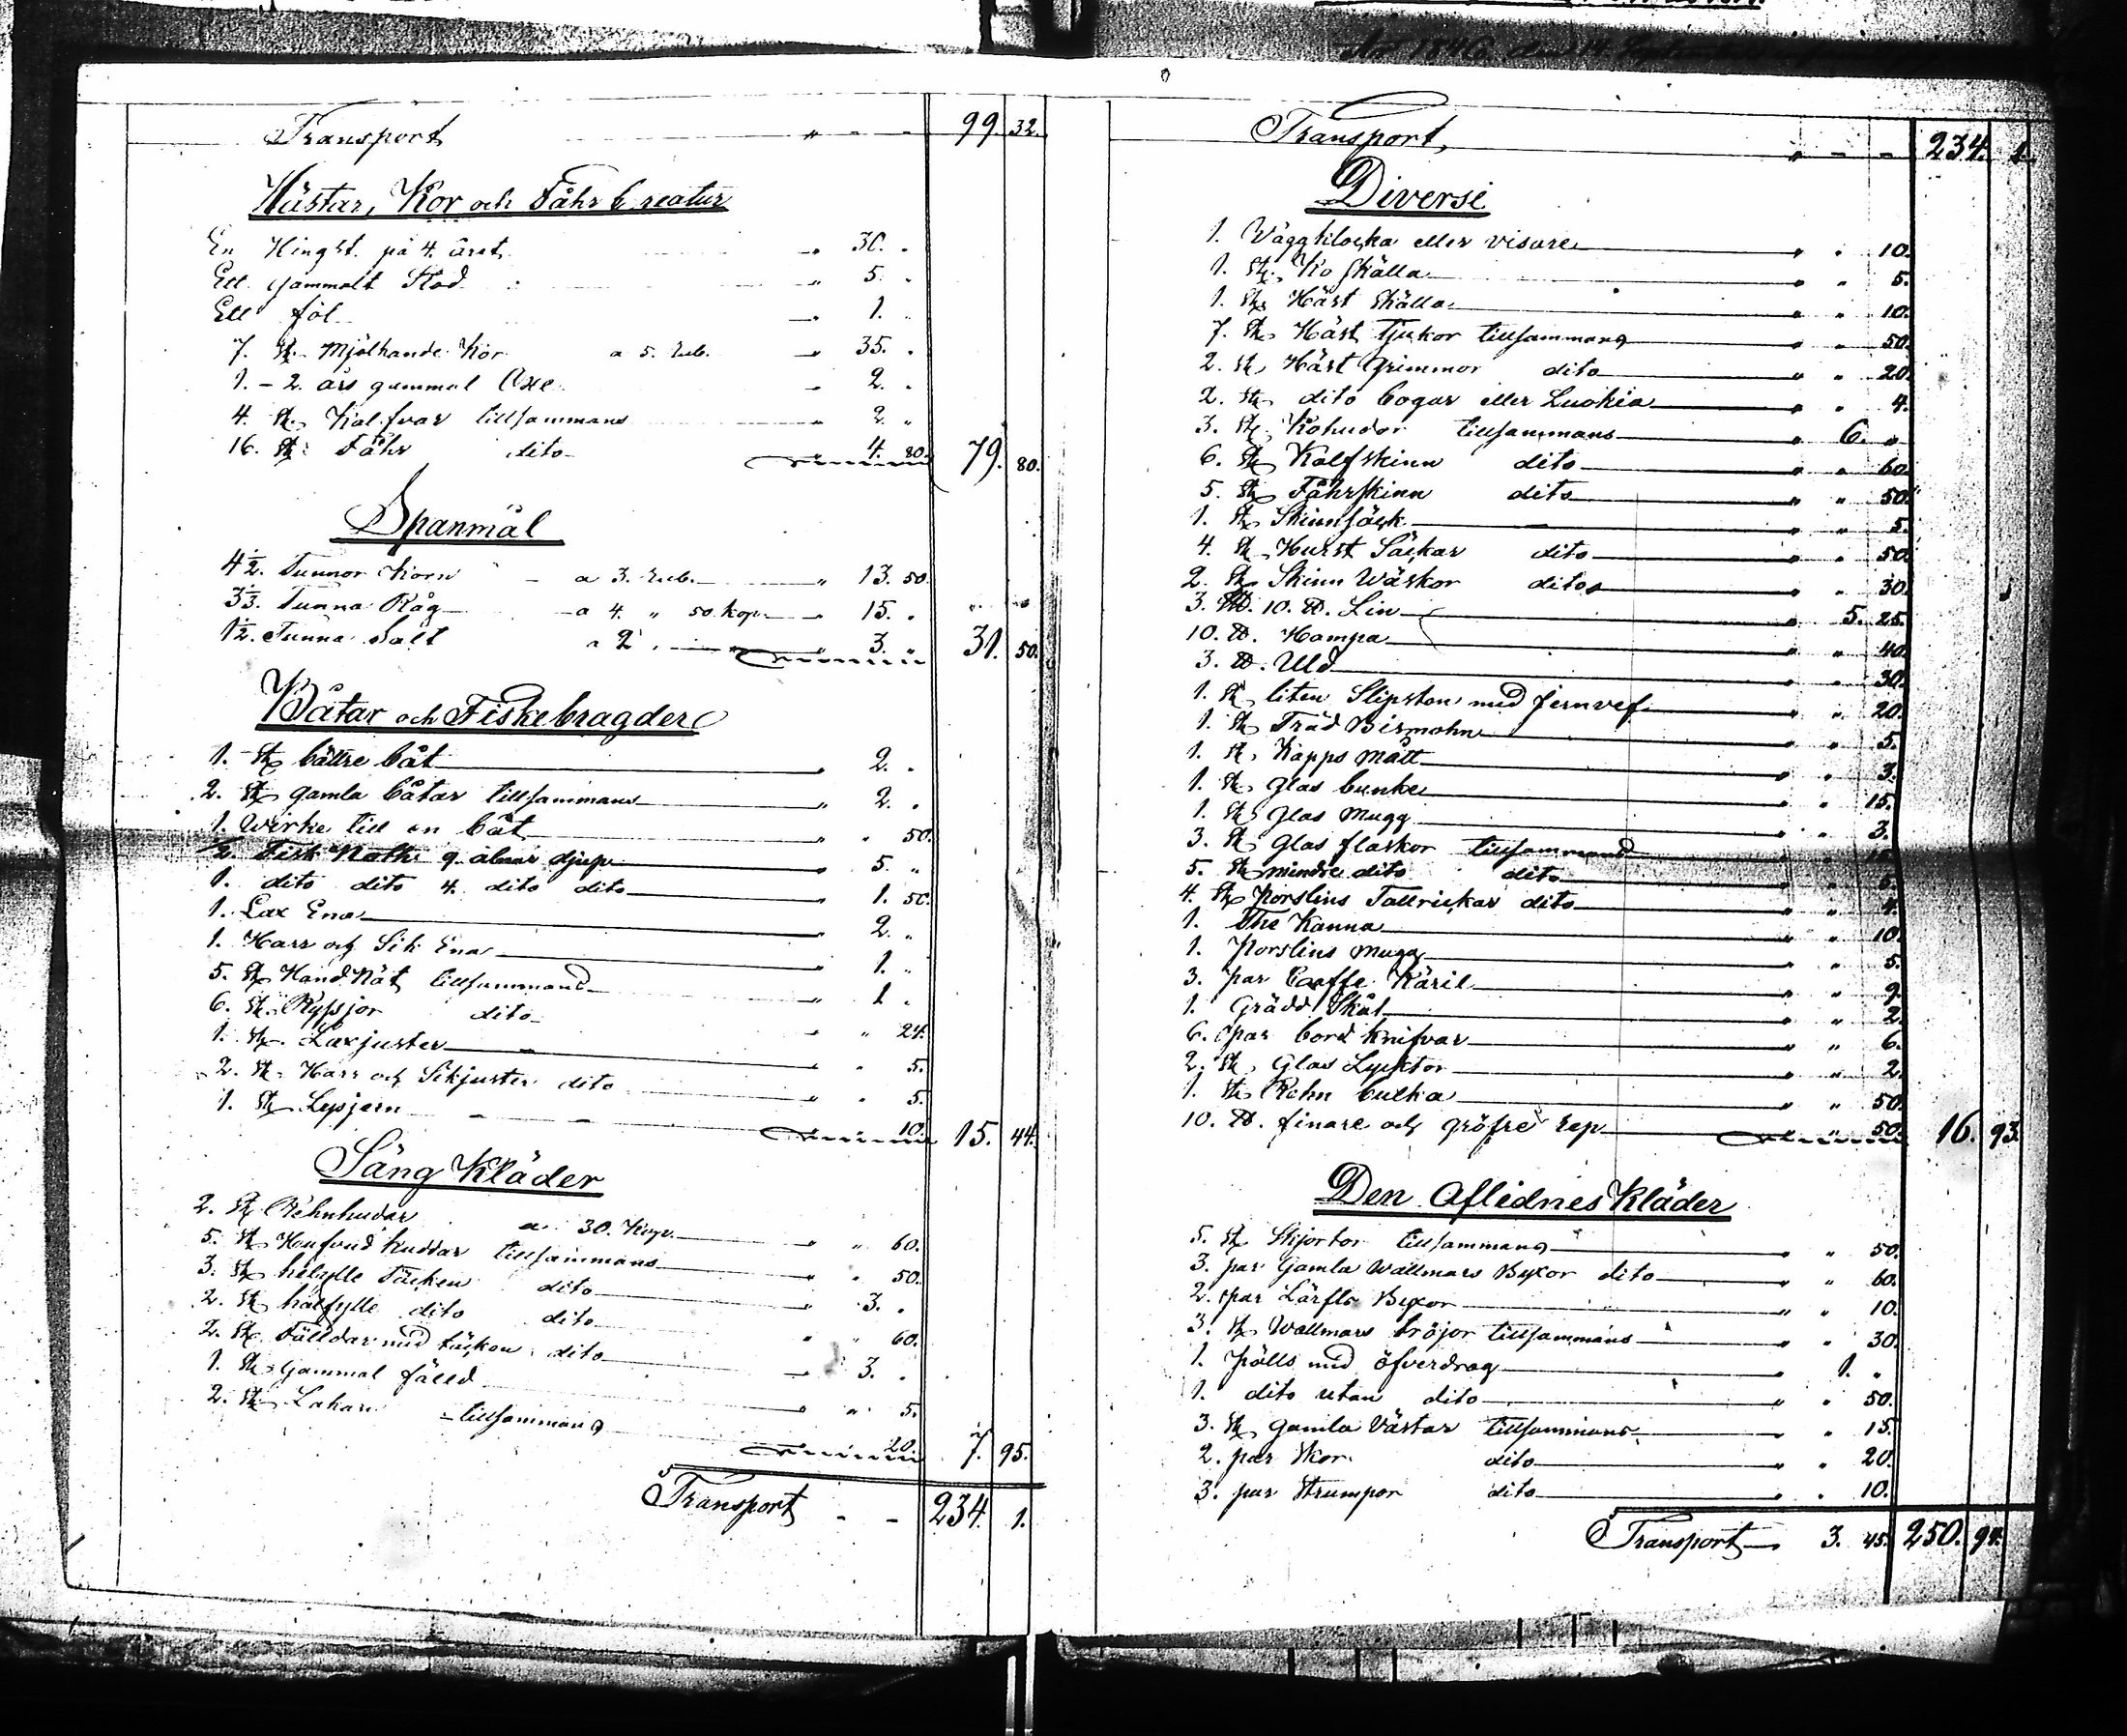 Transport " - - 99. 32.
Hästar, Kor och Fåhr Creatur
En Hingst på 4. året " 30. "
Ett gammalt Stod " 5. "
Ett föl " 1. "
7. St. Mjölkande Kor a 5. Rub. " 35. "
1. - 2. års gammal Oxe " 2. "
4. St. Kalfvar tillsammans " 2. "
16. St. Fåhr dito 4. 80. 79. 80.
Spanmål
4½. Tunnor Korn - a 3. Rub. " 13. 50.
3⅓. Tunna Råg a 4. " 50. kop. " 15. "
1½. Tunna Salt a 2 " 3. " 31. 50.
Båtar och Fiskebragder
1. St. bättre båt " 2. "
2. St. gamla båtar tillsammans " 2. "
1. Wirke till en båt " " 50.
2. Fisk Noth 9. alnar djup " 5. "
1. dito dito 4. dito dito " 1. 50.
1. Lax Ena " 2. "
1. Harr och Sik Ena " 1. "
5. St. Hand Nät tillsammans " 1 "
6. St. Ryssjor dito " " 24.
1. St. Laxjuster " " 5.
2. St. Harr och Sikjuster dito " " 5.
1. St. Lysjern - - 10. 15. 44.
Säng Kläder
2. St. Rehnhudar a 30. Kop. " " 60.
5. St. Hufvud kuddar tillsammans " " 50.
3. St. helylle Täcken dito " 3. "
2. St. halfylle dito dito " " 60.
2. St. Fälldar med täcken dito " 3. "
1. St. gammal fälld " " 5.
2. St. Lakan - tillsammans 20. 7. 95.
Transport - - 234. 1.
Transport, " - - 234. 1.
Diverse
1. Väggklocka eller visare " " 10.
1. St. Ko skälla " " 5.
1. St. Häst skälla " " 10.
7. St. Häst Tjukor tillsammans " " 50.
2. St. Häst Grimmor dito " " 20.
2. St. dito bogar eller Luokia " " 4.
3. St. Kohudar tillsammans " 6. "
6. St. Kalfskinn dito " " 60.
5. St. Fåhrskinn dito " " 50.
1. St. Skinnsäck " " 5.
4. St. Hurst Säckar dito " " 50.
2. St. Skinn Wäskor dito " " 30.
3. L℔. 10. ℔. Lin " 5. 25.
10. ℔. Hampa " " 40.
3. ℔. Ull " " 30.
1. St. liten Slipsten med jernvef " " 20.
1. St. Träd Bismahn " " 5.
1. St. Kapps mått " " 3.
1. St. glas bunke " " 15.
1. St. Glas mugg " " 3.
3. St. Glas flaskor tillsammans " " 15.
5. St. mindre dito dito " " 5.
4. St. Porslins Tallrickar dito " " 4.
1. The Kanna " " 10.
1. Porslins mugg " " 5.
3. par Caffe Käril " " 9.
1. Grädd Skål " " 2.
6. par bord knifvar " " 6.
2. St. Glas Lycktor " " 2.
1. St. Rehn bulka " " 50.
10. ℔. finare och gröfre rep 50. 16. 93.
Den Aflidnes Kläder
5. St. Skjortor tillsammans " " 50.
3. par Gamla Wallmars Byxor dito " " 60.
2. par Lärfts Byxor " " 10.
3. St. Wallmars tröjor tillsammans " " 30.
1. Pälls med öfverdrag " 1. "
1. dito utan dito " " 50.
3. St. gamla Västar tillsammans " " 15.
2. par Skor dito " " 20.
3. par Strumpor dito " " 10.
Transport " 3. 45. 250. 94.